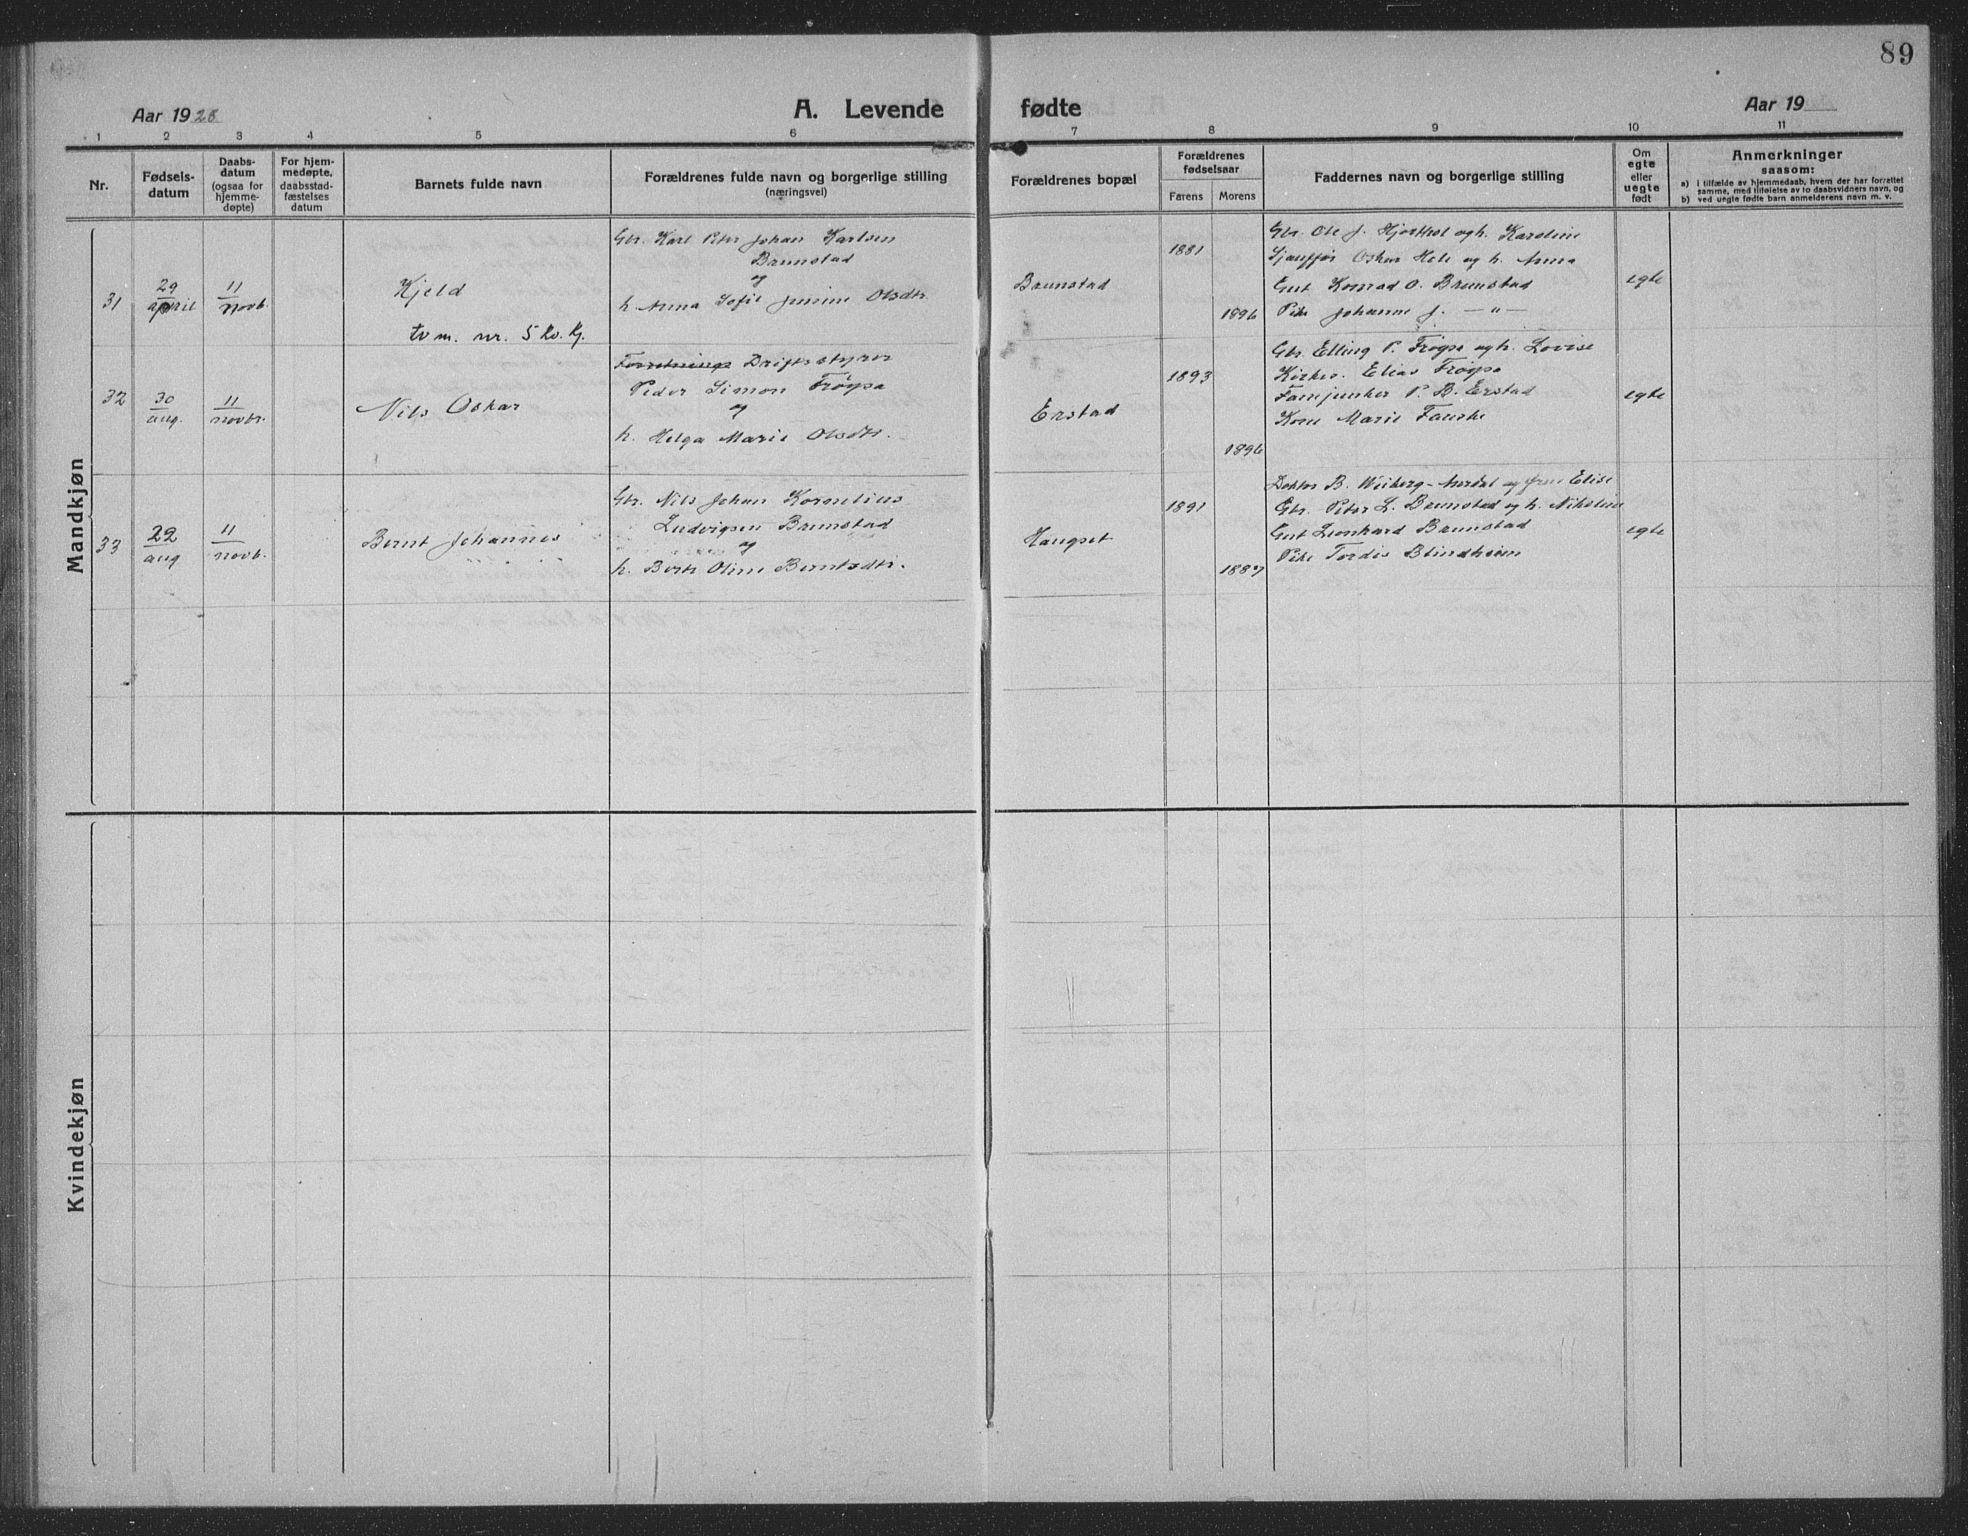 89
Aar 1928
A. Levende fødte
Aar 19
1 2 3 4 5 6 7 8 9 10 11
Nr.
Fødsels-
datum
Daabs-
datum
(ogsaa for
hjemme-
døpte)
For hjem-
medøpte,
daabsstad-
fæstelses
datum
Barnets fulde navn
Forældrenes fulde navn og borgerlige stilling
(næringsvei)
Forældrenes bopæl
Forældrenes
fødselsaar
Farens Morens
Faddernes navn og borgerlige stilling
Om
egte
eller
uegte
født
Anmerkninger
saasom:
a) i tilfælde av hjemmedaab, hvem der har forrettet
samme, med tilføielse av to daabsvidners navn, og
b) ved uegte fødte barn anmelderens navn m. v.
Mandkjøn
31
29
april
11
novb.
Kjeld
tv m. nr. 5 kv. kj.
Gbr. Karl Peter Johan Karlsen
Brunstad
og
h. Anna Sofie Jensine Olsdtr.
Brunstad
1881
1896
Gbr. Ole J. Hjorthol og h. Karoline
Sjauffør Oskar Hole og h. Anna
Gut Konrad O. Brunstad
Pike Johanne J. — " —
egte
32
30
aug.
11
novbr.
Nils Oskar
Forretnings Driftsstyrer
Peder Simon Frøysa
og
h. Helga Marie Olsdtr.
Erstad
1893
1896
Gbr. Elling P. Frøysa og h. Lovise
Kirkes. Elias Frøysa
Fanejunker P. B. Erstad
Kone Marie Fauske
egte
33
22
aug
11
novb.
Bernt Johannes
Gbr. Nils Johan Kornelius
Ludvigsen Brunstad
og
h. Berte Oline Berntsdtr.
Haugset
1891
1887
Doktor B. Weiberg-Aurdal og frue Elise
Gbr. Peter L. Brunstad og h. Nikoline
Gut Leonhard Brunstad
Pike Tordis Blindheim
egte
Kvindekjøn